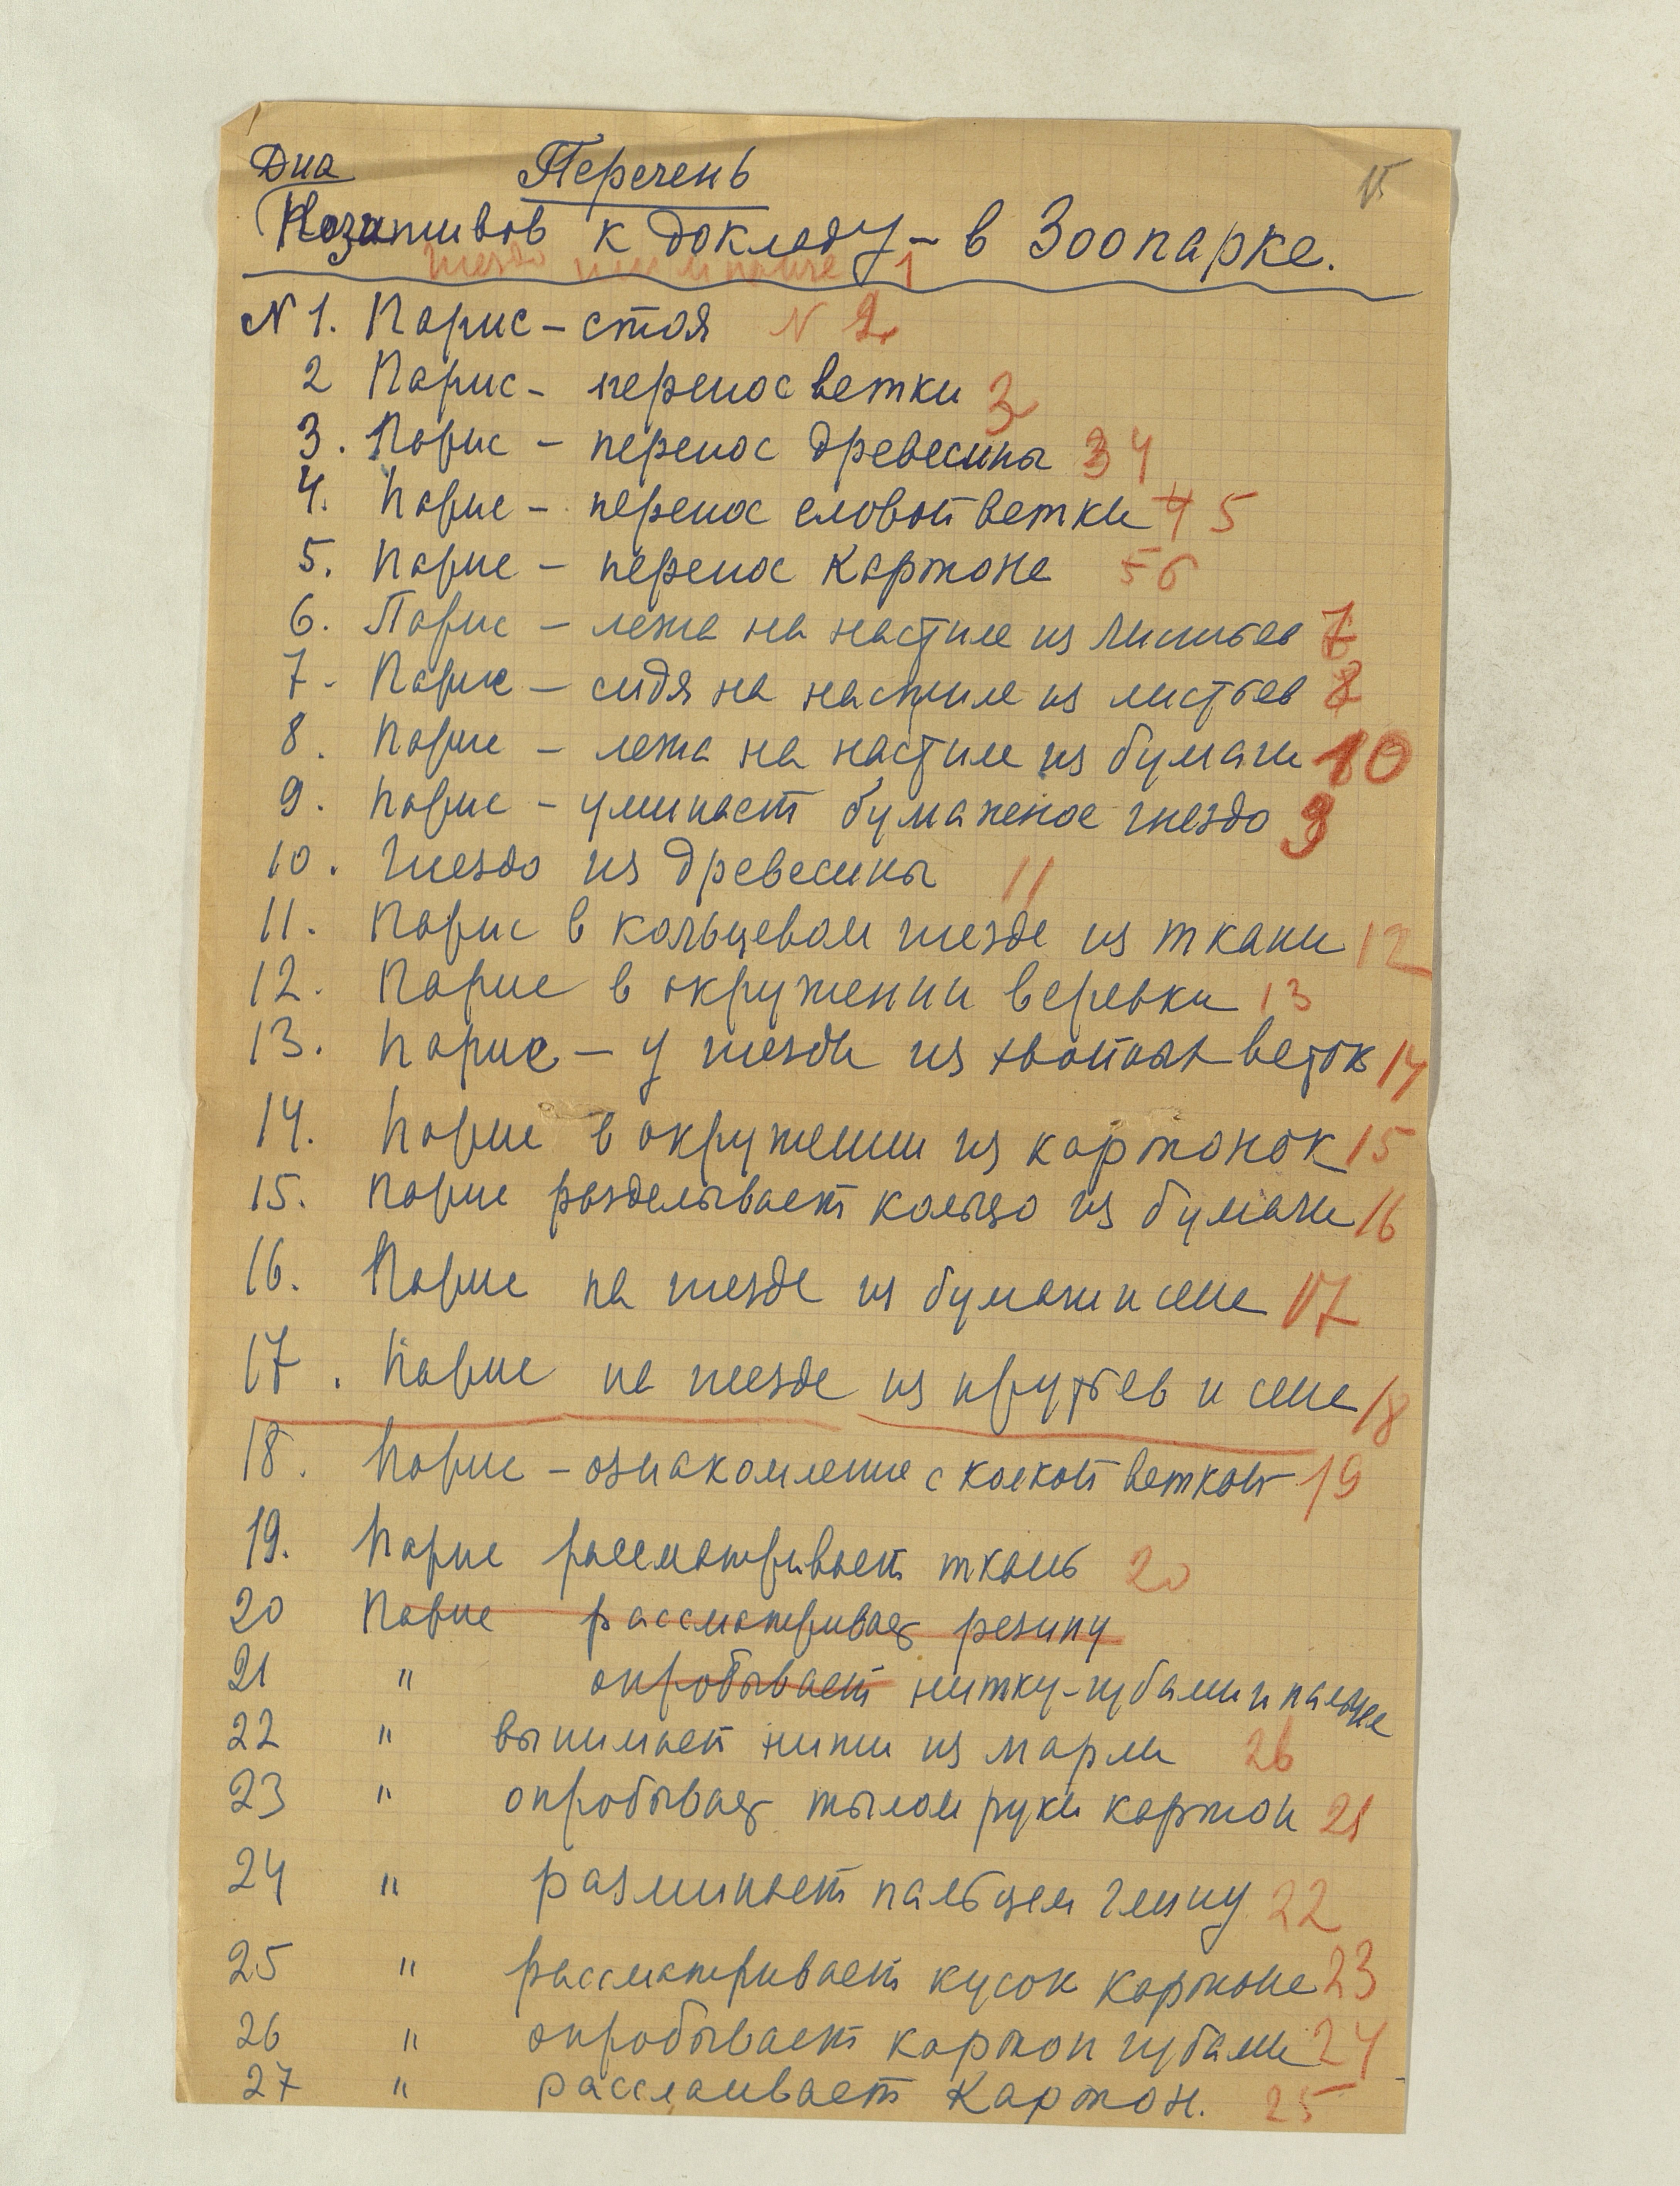 Диа Перечень 15
Позитивов к докладу - в Зоопарке.
гнездо шимпанзе 1
N 1. Парис - стоя N 2
2 Парис - перенос ветки 3
3. Парис - перенос древесины 3 4
4. Парис - перенос еловой ветки 4 5
5. Парис - перенос картона 5 6
6. Парис - лежа на настиле из листьев 7
7. Парис - сидя на настиле из листьев 8
8. Парис - лежа на настиле из бумаги 10
9. Парис - уминает бумажное гнездо 9
10. Гнездо из древесины 11
11. Парис в кольцевом гнезде из ткани 12
12. Парис в окружении веревки 13
13. Парис - у гнезда из хвойных веток 14
14. Парис в окружении из картонок 15
15. Парис разделывает кольцо из бумаги 16
16. Парис на гнезде из бумаги и сена 17
17. Парис на гнезде из прутьев и сена 18
18. Парис - ознакомление с колкой веткой 19
19. Парис рассматривает ткань 20
20 Парис рассматривает резину
21 " опробывает нитку - губами и пальцем
22 " вынимает нити из марли 26
23 " опробывает тылом руки картон 21
24 " разминает пальцем глину 22
25 " рассматривает кусок картона 23
26 " опробывает картон губами 24
27 " расслаивает картон. 25